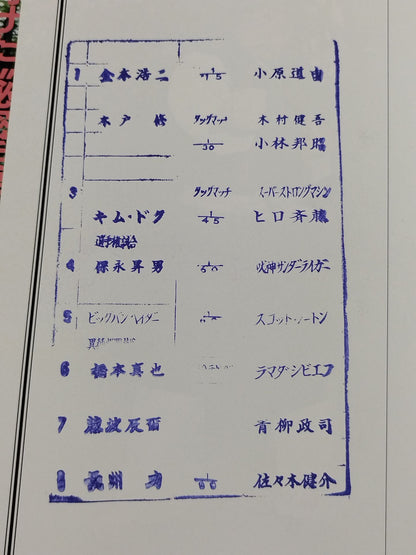 1 金本浩二 1/15 小原道由
木戸 修 タッグマッチ 木村健吾
1/30 小林邦昭
3 タッグマッチ スーパーストロングマシン
キム・ドク 1/45 ヒロ斉藤
選手権試合
4 保永昇男 1/50 獣神サンダーライガー
5 ビッグバン・ベイダー スコット・ノートン
6 橋本真也
7 藤波辰爾 青柳政司
8 長州 力 1/60 佐々木健介